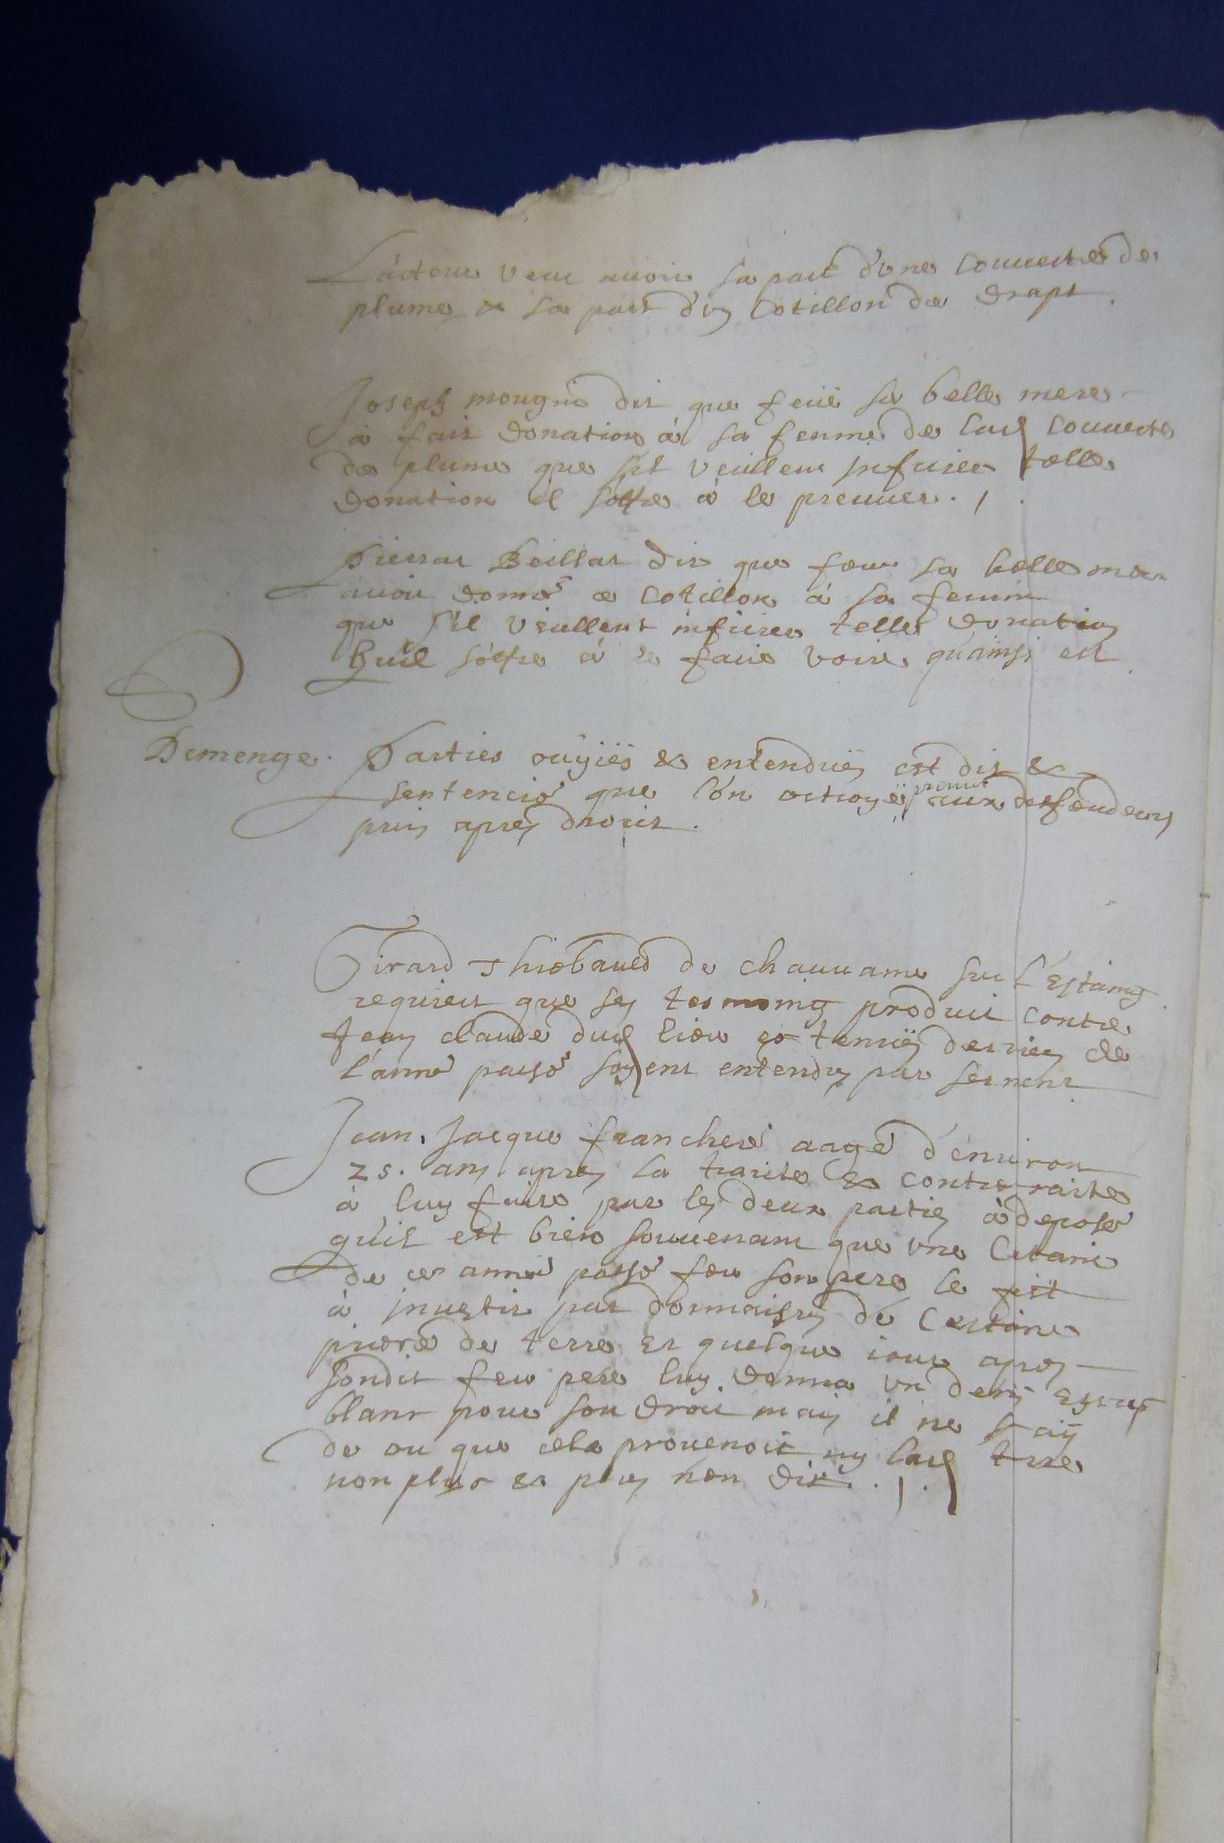 L'acteur veut avoir sa part d'une couverte de
plume & sa part d'un Cotillon de drapt.
Joseph mougin dit que feüe sa belle mere
à fait donation à sa femme de lad couverte
de plume que sil veullent infirier telle
donation il s'offre à le preuver.
Pierrat Beillat dit que feue sa belle mere
avoit donné ce Cotillon à sa femme
que s'il veullent infirier telle donation
quil s'offre à le faire voire qu'ainsi est
Demenge. Parties ouÿiës & entenduës est dit &
sentencié que l'on octroyë preuve aux deffendeurs
puis apres droict.
Girard Thiebaued de chauuanne sur l'Estaing
requiert que ses tesmoing produit contre
Jean claude dud lieu es tenuës derniers de
l'anné passé soyent entendus par serment
Jean Jacque francheré aagé d'environ
25. ans apres la traite & contretraite
à luy faite par les deux parties à deposé
quil est bien souuenant que une Certaine
de ces anné passé feu son pere le fit
à investir par de certaine
piece de terre et quelque iour apres
sondit feu pere luy donna un demÿ escus
blanc pour son droit mais il ne sçaÿ
de ou que cela provenoit ny lad terre
non plus et plus n'en dit.